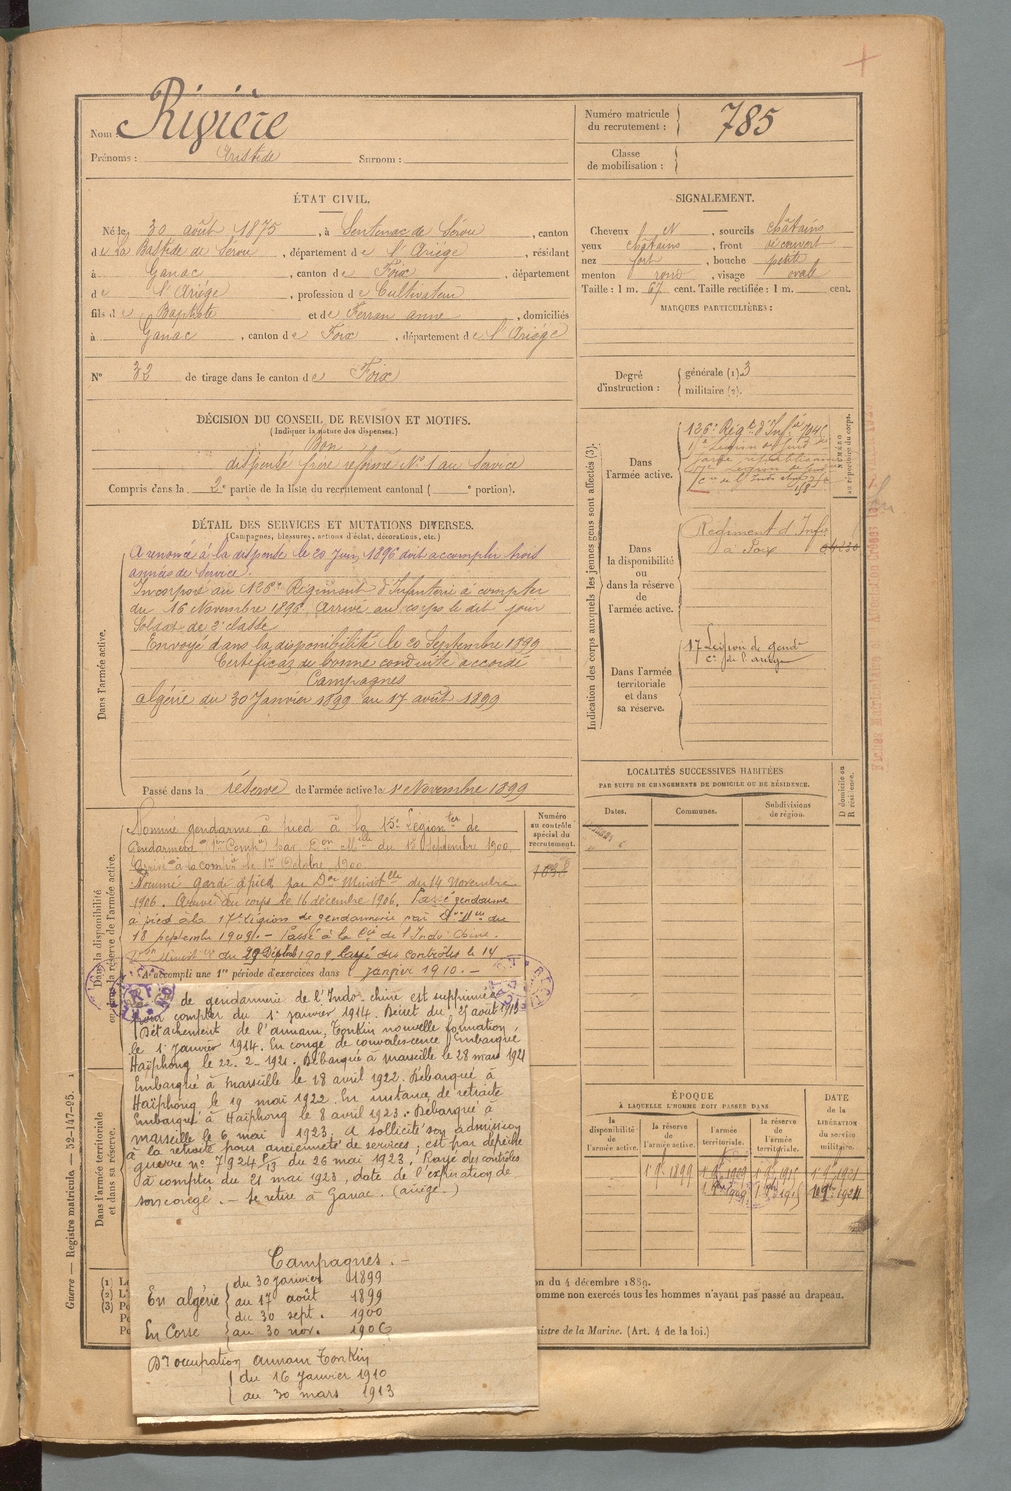 Nom : Rivière
Prénoms : Aristide Surnom :
Numéro matricule du recrutement : 785
Classe de mobilisation :
ÉTAT CIVIL.
Né le 30 août 1875, à Sentenac de Sérou, canton
de La Bastide de Sérou, département de l'Ariége, résidant
à Ganac, canton de Foix, département
de l'Ariége, profession de Cultivateur
fils de Baptiste et de Ferran anne, domiciliés
à Ganac, canton de Foix, département de l'Ariége
N° 32 de tirage dans le canton de Foix
SIGNALEMENT.
Cheveux N, sourcils châtains
yeux châtains, front découvert
nez fort, bouche petite
menton rond, visage ovale
Taille : 1 m. 67 cent. Taille rectifiée : 1 m. cent.
MARQUES PARTICULIÈRES :
Degré d'instruction : générale (1) 3
militaire (2).
DÉCISION DU CONSEIL DE REVISION ET MOTIFS.
(Indiquer la nature des dispenses.)
Bon
dispensé frère réformé N° 1 au Service
Compris dans la 2e partie de la liste du recrutement cantonal ( e portion).
DÉTAIL DES SERVICES ET MUTATIONS DIVERSES.
(Campagnes, blessures, actions d'éclat, décorations, etc.)
Dans l'armée active.
A renoncé à la dispense le 20 Juin 1896 doit accomplir trois
années de Service.
Incorporé au 126e Régiment d'Infanterie à compter
du 16 Novembre 1896. Arrivé au corps le dit jour
Soldat de 2e classe
Envoyé dans la disponibilité le 20 Septembre 1899
Certificat de bonne conduite accordé
Campagnes
Algérie du 30 Janvier 1899 au 17 août 1899
Passé dans la réserve de l'armée active le 1er Novembre 1899
Indication des corps auxquels les jeunes gens sont affectés (3).
NUMÉRO au répertoire du corps.
Dans l'armée active.
126e Régt d'Infie
Dans la disponibilité ou dans la réserve de l'armée active.
Régiment d'Infie
à Foix
Dans l'armée territoriale et dans sa réserve.
17e Légion de gend
Cie de l'ariège
LOCALITÉS SUCCESSIVES HABITÉES
PAR SUITE DE CHANGEMENTS DE DOMICILE OU DE RÉSIDENCE.
Dates. Communes. Subdivisions de région.
D domicile ou R résidence.
Dans la disponibilité ou dans la réserve de l'armée active.
Numéro au contrôle spécial du recrutement.
Nommé gendarme à pied à la 15e Légion ter de
Gendarmerie par Don Mlle du 18 Septembre 1900
Arrivé à la compie le 1er Octobre 1900
Nommé garde à pied par Don Ministlle du 14 Novembre
1906. Arrivé au corps le 16 décembre 1906. Passé gendarme
à pied à la 17e Légion de gendarmerie par
18 septembre 1909. — Passé à la Cie de l'Indo-Chine.
1909. Rayé des contrôles le 14
A accompli une 1re période d'exercices dans janvier 1910. —
de gendarmerie de l'Indo-chine est supprimée
pour compter du 1er janvier 1914. Décret du 25 août 1913
Détachement de l'annam, Tonkin nouvelle formation
le 1er Janvier 1914. En congé de convalescence Embarqué
Haïphong le 22-2-1921. Débarqué à marseille le 28 mars 1921
Embarqué à marseille le 18 avril 1922. Débarqué à
Haïphong le 19 mai 1922. En instance de retraite
Embarqué à Haïphong le 8 avril 1923. Débarqué à
marseille le 6 mai 1923. A sollicité son admission
à la retraite pour ancienneté de services, est par dépêche
guerre n° 7924 du 26 mai 1923, Rayé des contrôles
à compter du 21 mai 1923, date de l'expiration de
son congé. — Se retire à Ganac. (ariège.)
Campagnes. —
En algérie du 30 janvier 1899
au 17 août 1899
En Corse du 30 sept. 1900
au 30 nov. 1906
Dt occupation annam Tonkin
du 16 janvier 1910
au 30 mars 1913
Dans l'armée territoriale et dans sa réserve.
ÉPOQUE
À LAQUELLE L'HOMME DOIT PASSER DANS
la disponibilité de l'armée active. la réserve de l'armée active. l'armée territoriale. la réserve de l'armée territoriale.
DATE de la LIBÉRATION du service militaire.
1er 9bre 1899 1er 9bre 1909
on du 4 décembre 1889.
omme non exercés tous les hommes n'ayant pas passé au drapeau.
nistre de la Marine. (Art. 4 de la loi.)
Guerre — Registre matricule. — 52-147-95.